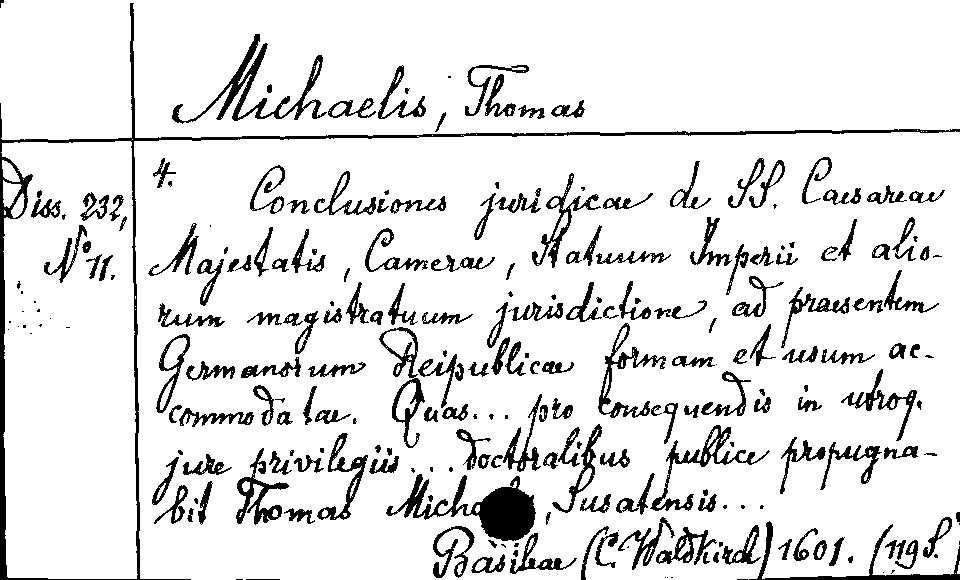 Michaelis, Thomas
Diss. 232,
No 11.
4.
Conclusiones juridicae de SS. Caesareae
Majestatis, Camerae, Statuum Imperii et alio-
rum magistratuum jurisdictione, ad praesentem
Germanorum Reipublicae formam et usum ac-
commodatae. Quas... pro consequendis in utroq.
jure privilegiis... doctoralibus publice propugna-
bit Thomas Michaelis, Susatensis...
Basileae (C. Waldkirch) 1601. (119 S.)